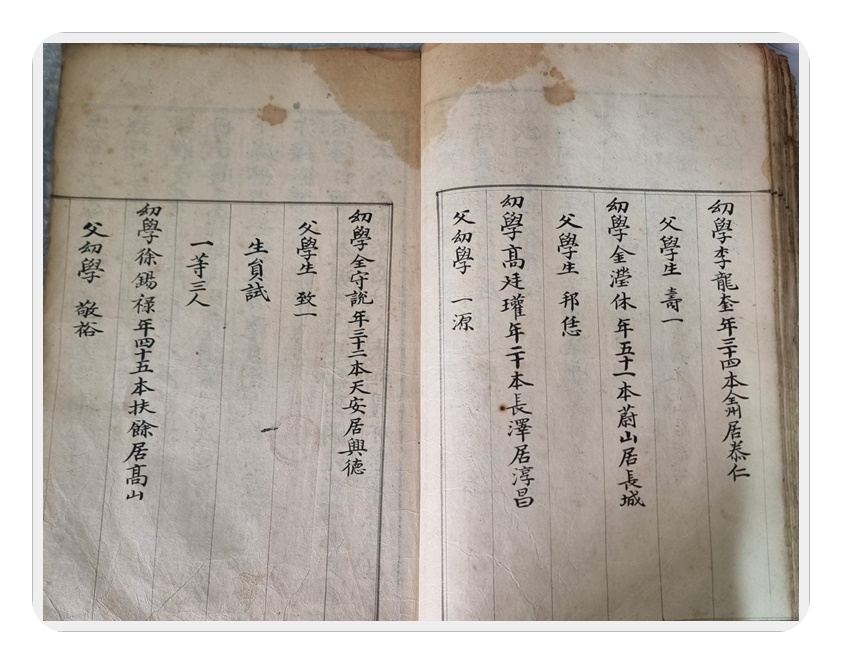 幼學李龍奎年三十四本全州居泰仁
父學生 壽一
幼學金瀅休年五十一本蔚山居長城
父學生 邦恁
幼學高廷瓘年二十本長澤居淳昌
父幼學 一源
幼學全守說年三十二本天安居興德
父學生 致一
生員試
一等三人
幼學徐錫祿年四十五本扶餘居高山
父幼學 敬裕